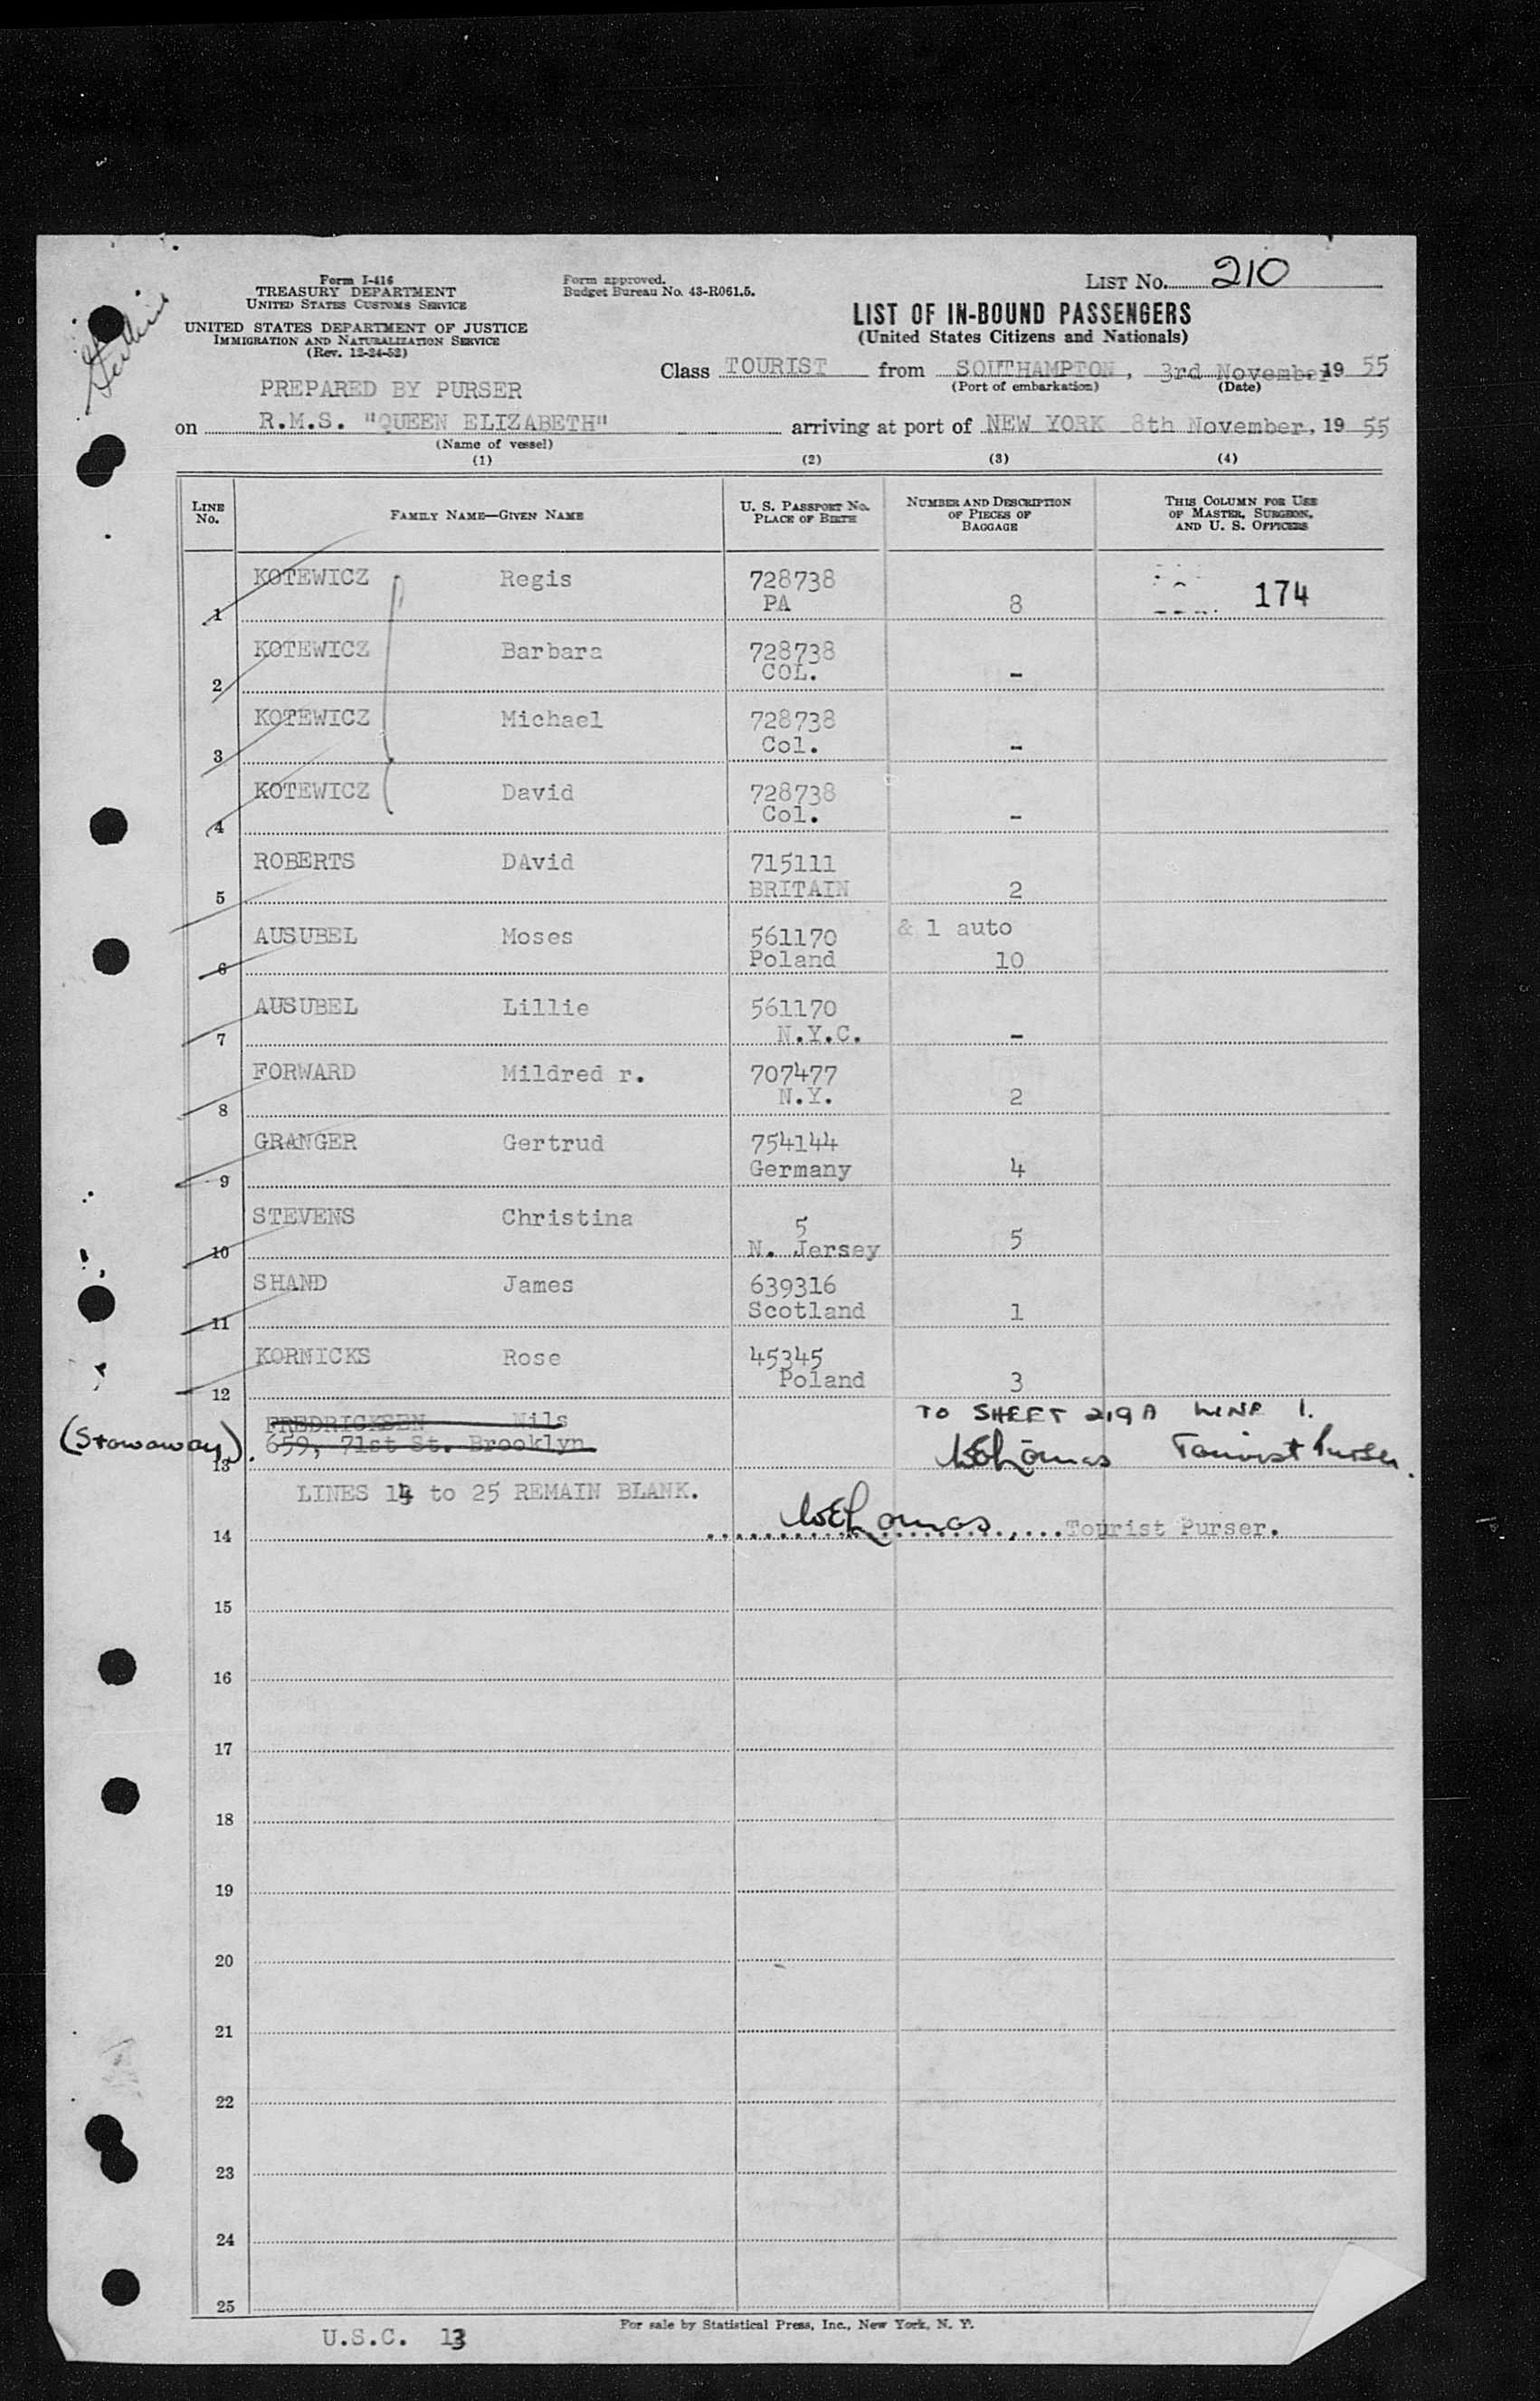 Form I-416
TREASURY DEPARTMENT
UNITED STATES CUSTOMS SERVICE
UNITED STATES DEPARTMENT OF JUSTICE
IMMIGRATION AND NATURALIZATION SERVICE
(Rev. 12-24-52)
Form approved.
Budget Bureau No. 43-R061.5.
LIST No. 210
LIST OF IN-BOUND PASSENGERS
(United States Citizens and Nationals)
Class TOURIST from SOUTHAMPTON, 3rd November 19 55
(Port of embarkation) (Date)
PREPARED BY PURSER
on R.M.S. "QUEEN ELIZABETH" arriving at port of NEW YORK 8th November, 19 55
(Name of vessel)
(1) (2) (3) (4)
LINE No. FAMILY NAME—GIVEN NAME U. S. PASSPORT No. PLACE OF BIRTH NUMBER AND DESCRIPTION OF PIECES OF BAGGAGE THIS COLUMN FOR USE OF MASTER, SURGEON, AND U. S. OFFICERS
KOTEWICZ Regis 728738 174
1 PA 8
KOTEWICZ Barbara 728738
2 COL. -
KOTEWICZ Michael 728738
3 Col. -
KOTEWICZ David 728738
4 Col. -
ROBERTS DAvid 715111
5 BRITAIN 2
AUSUBEL Moses 561170 & 1 auto
6 Poland 10
AUSUBEL Lillie 561170
7 N.Y.C. -
FORWARD Mildred r. 707477
8 N.Y. 2
GRANGER Gertrud 754144
9 Germany 4
STEVENS Christina 5
10 N. Jersey 5
SHAND James 639316
11 Scotland 1
KORNICKS Rose 45345
12 Poland 3
FREDRICKSEN Nils TO SHEET 219A LINE 1.
(Stowaway) 659, 71st St. Brooklyn Tourist Purser.
13
LINES 14 to 25 REMAIN BLANK.
14 Tourist Purser.
15
16
17
18
19
20
21
22
23
24
25
For sale by Statistical Press, Inc., New York, N. Y.
U.S.C. 13